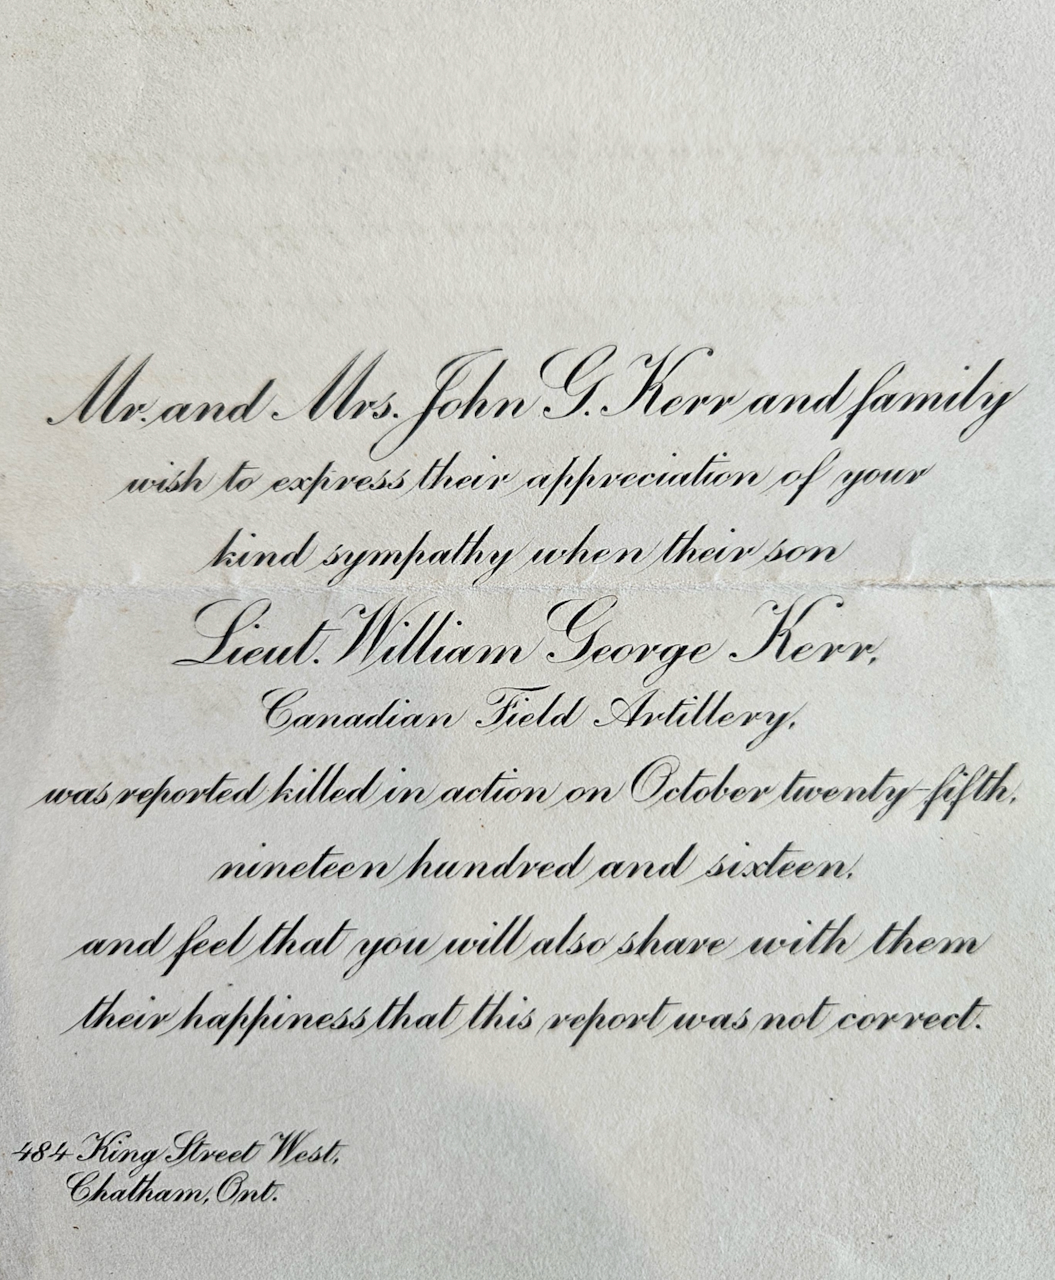 Mr. and Mrs. John G. Kerr and family
wish to express their appreciation of your
kind sympathy when their son
Lieut. William George Kerr,
Canadian Field Artillery,
was reported killed in action on October twenty-fifth,
nineteen hundred and sixteen,
and feel that you will also share with them
their happiness that this report was not correct.
484 King Street West,
Chatham, Ont.